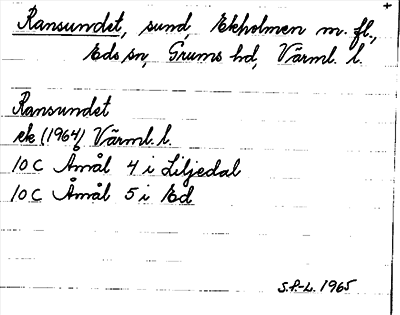 Ransundet, sund, Ekholmen m. fl.,
Eds sn, Grums hd, Värml. l.
Ransundet
ek (1964) Värml. l.
10 C Åmål 4 i Liljedal
10 C Åmål 5 i Ed
S.P-L. 1965